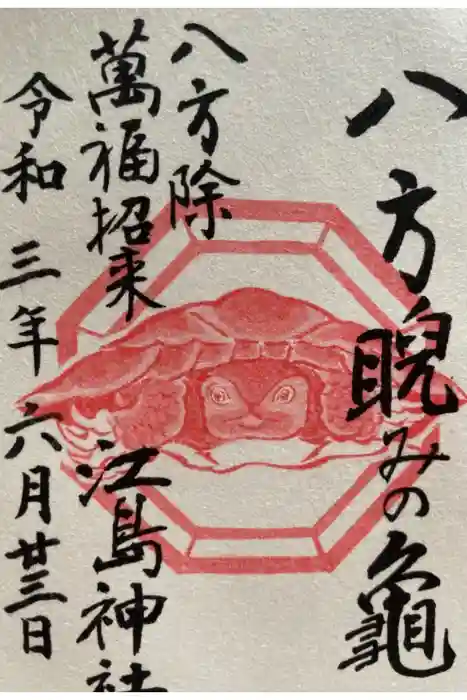 八方睨みの亀
八方除
萬福招来
江島神社
令和三年六月廿三日